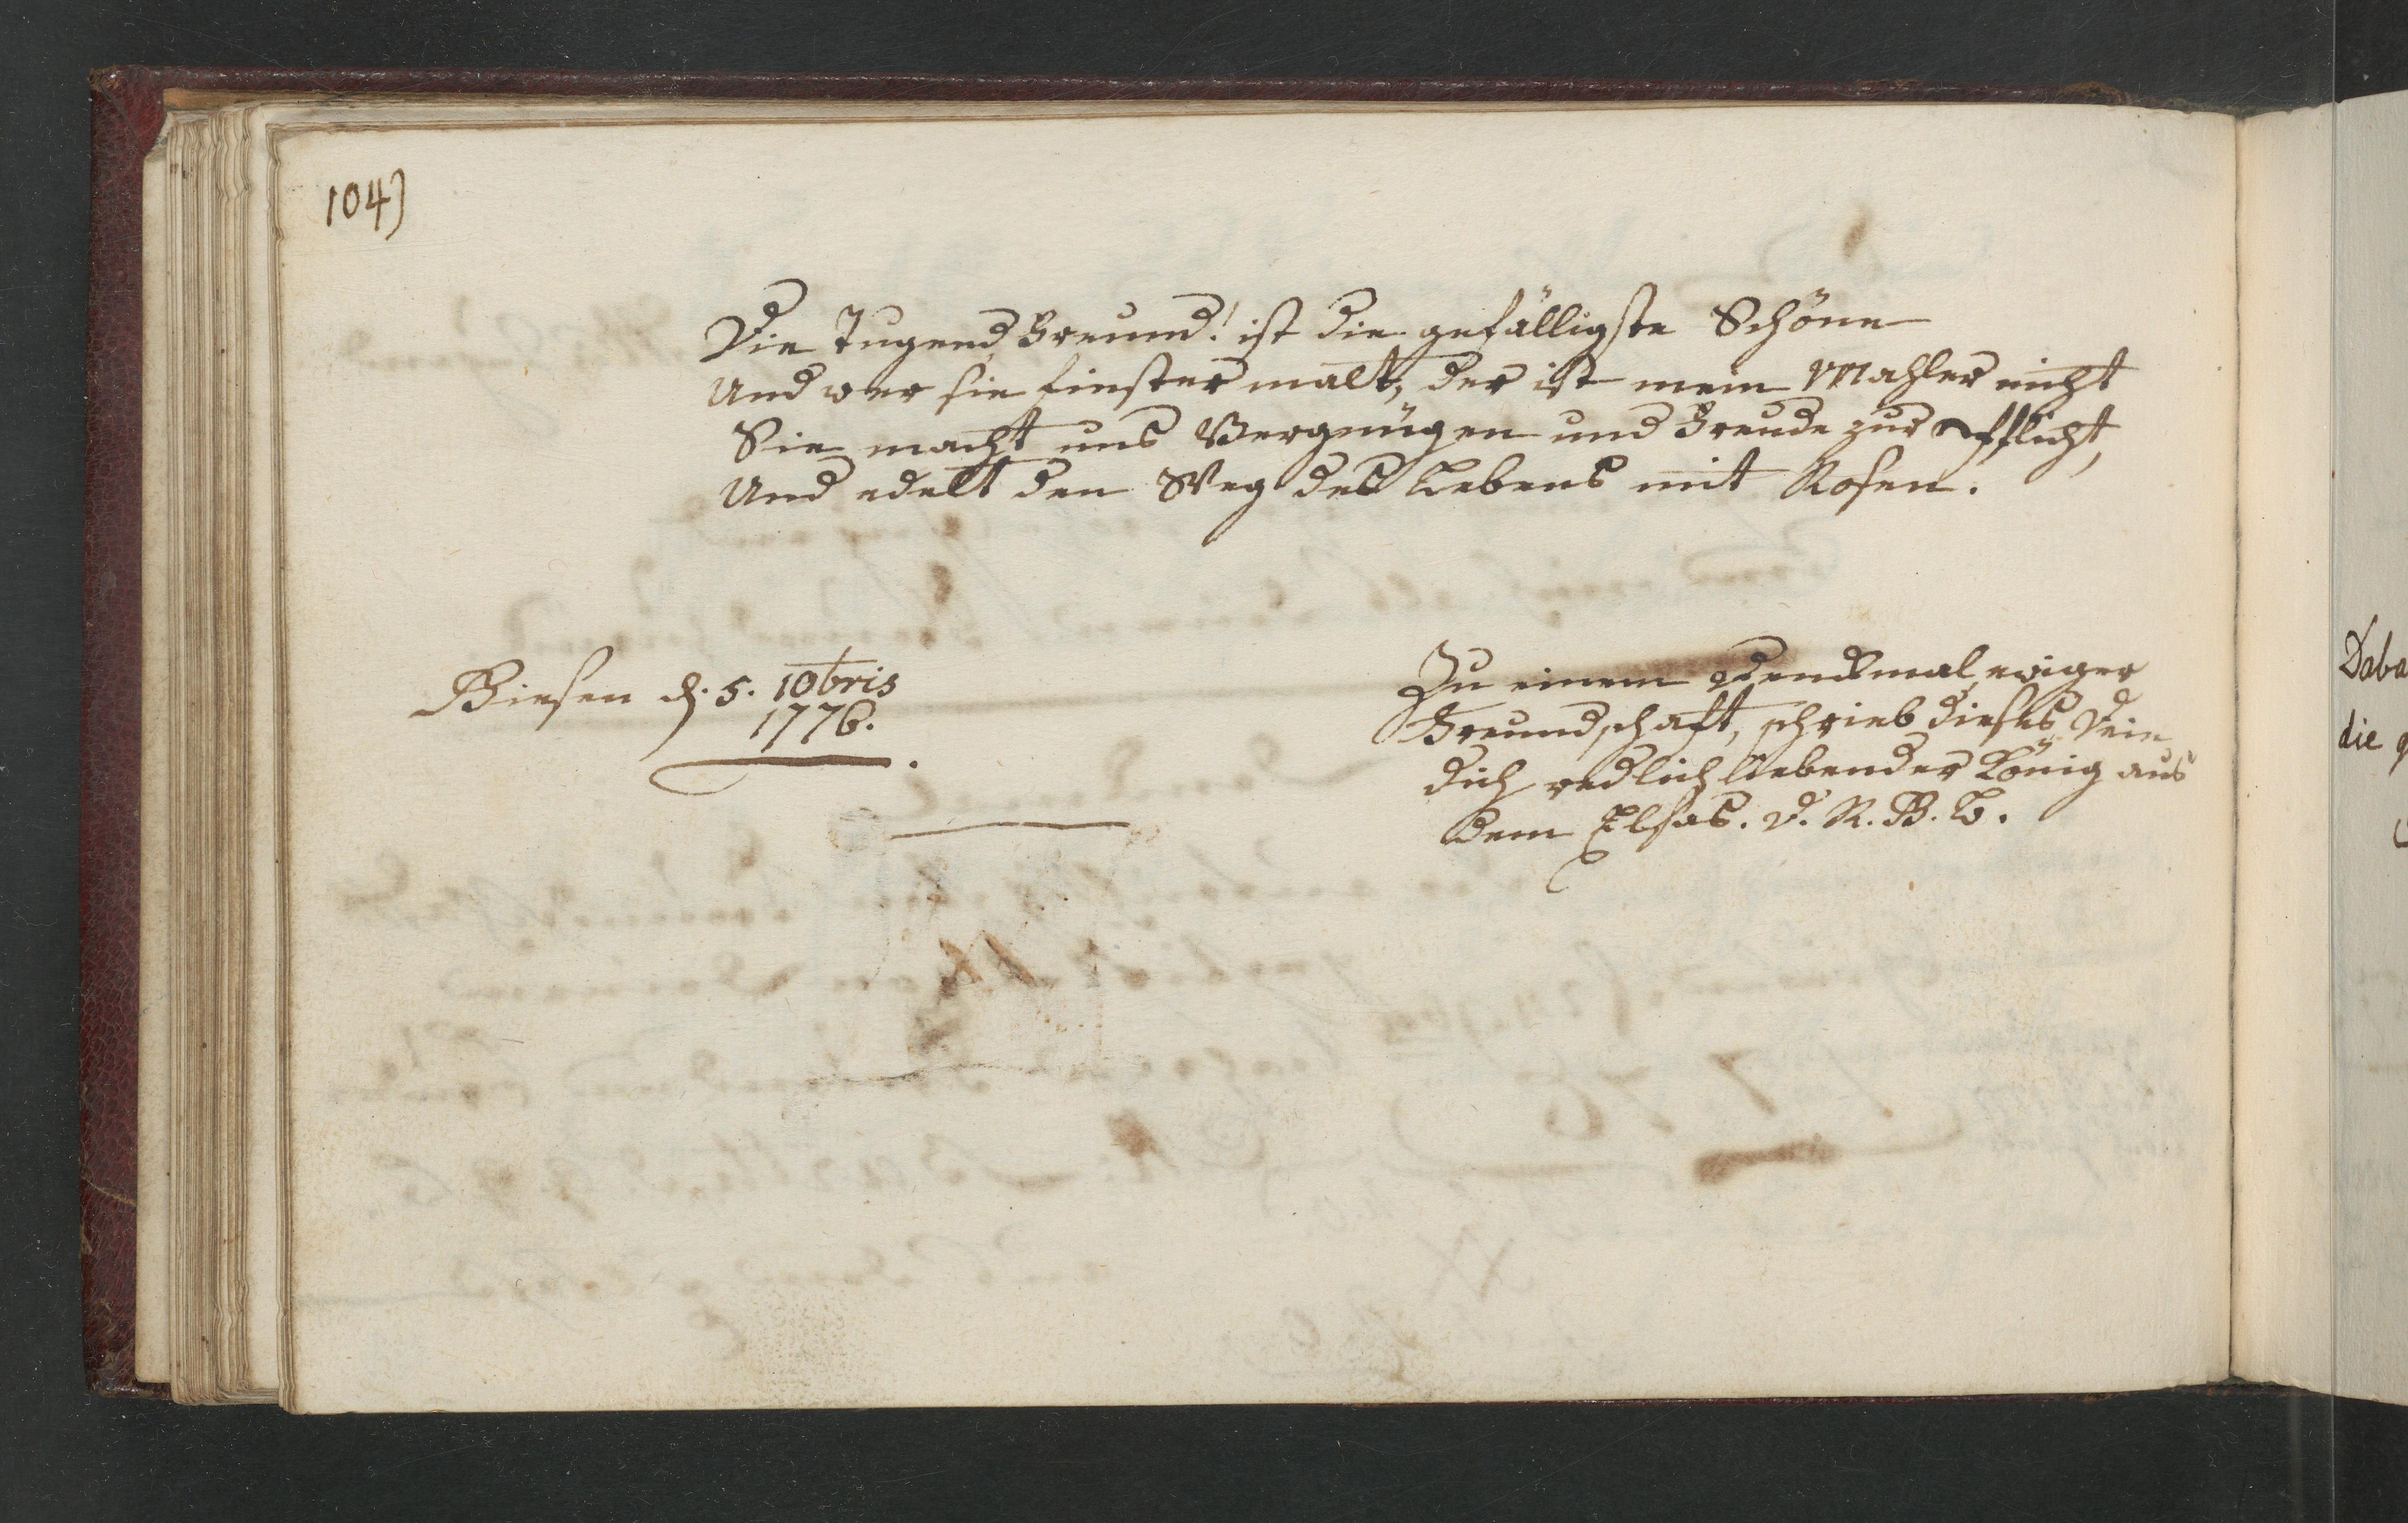 104)
Die Tugend, Freund! ist die gefälligste Schöne
Und wer sie finster malt, der ist mein Mahler nicht
Sie macht uns Vergnügen und Freude zur Pflicht,
Und edelt den Weg des Lebens mit Rosen.
Giesen d. 5. 10bris
1776.
Zu einem Denckmal ewiger
Freundschaft, schrieb dieses Dein
dich redlich liebender König aus
dem Elsas. d. R. B. L.
Daba
die